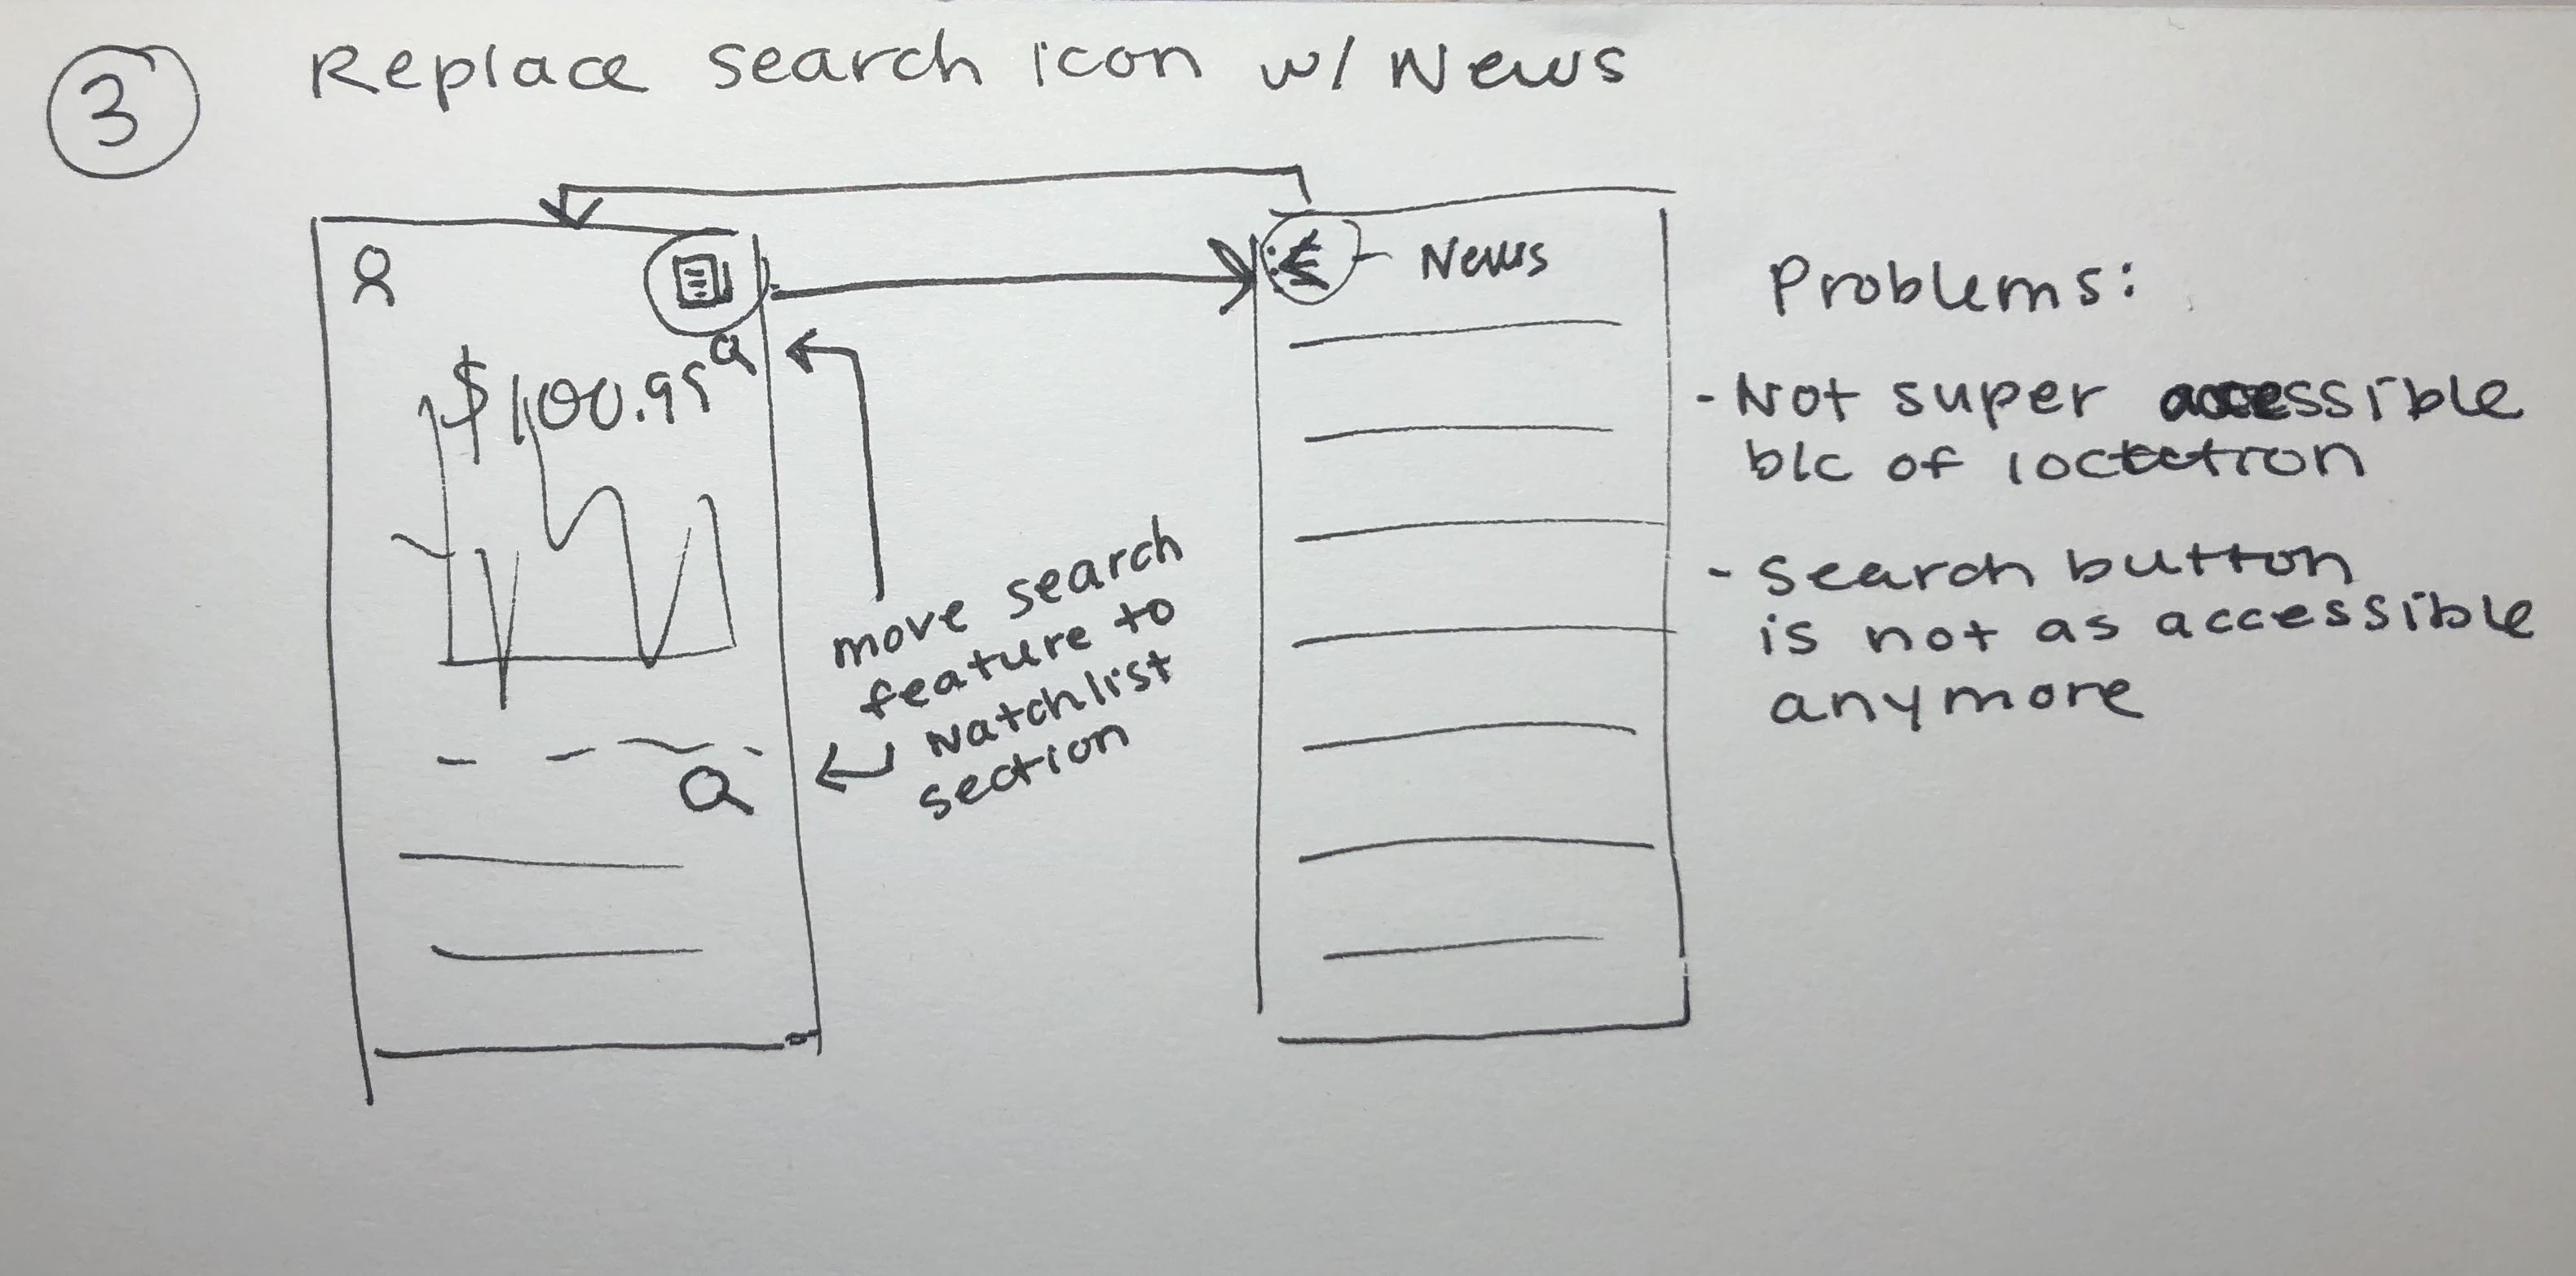 3
Replace search icon w/ News
$100.95
News
move search
feature to
watchlist
section
Problems:
- Not super accessible
b/c of location
- search button
is not as accessible
anymore